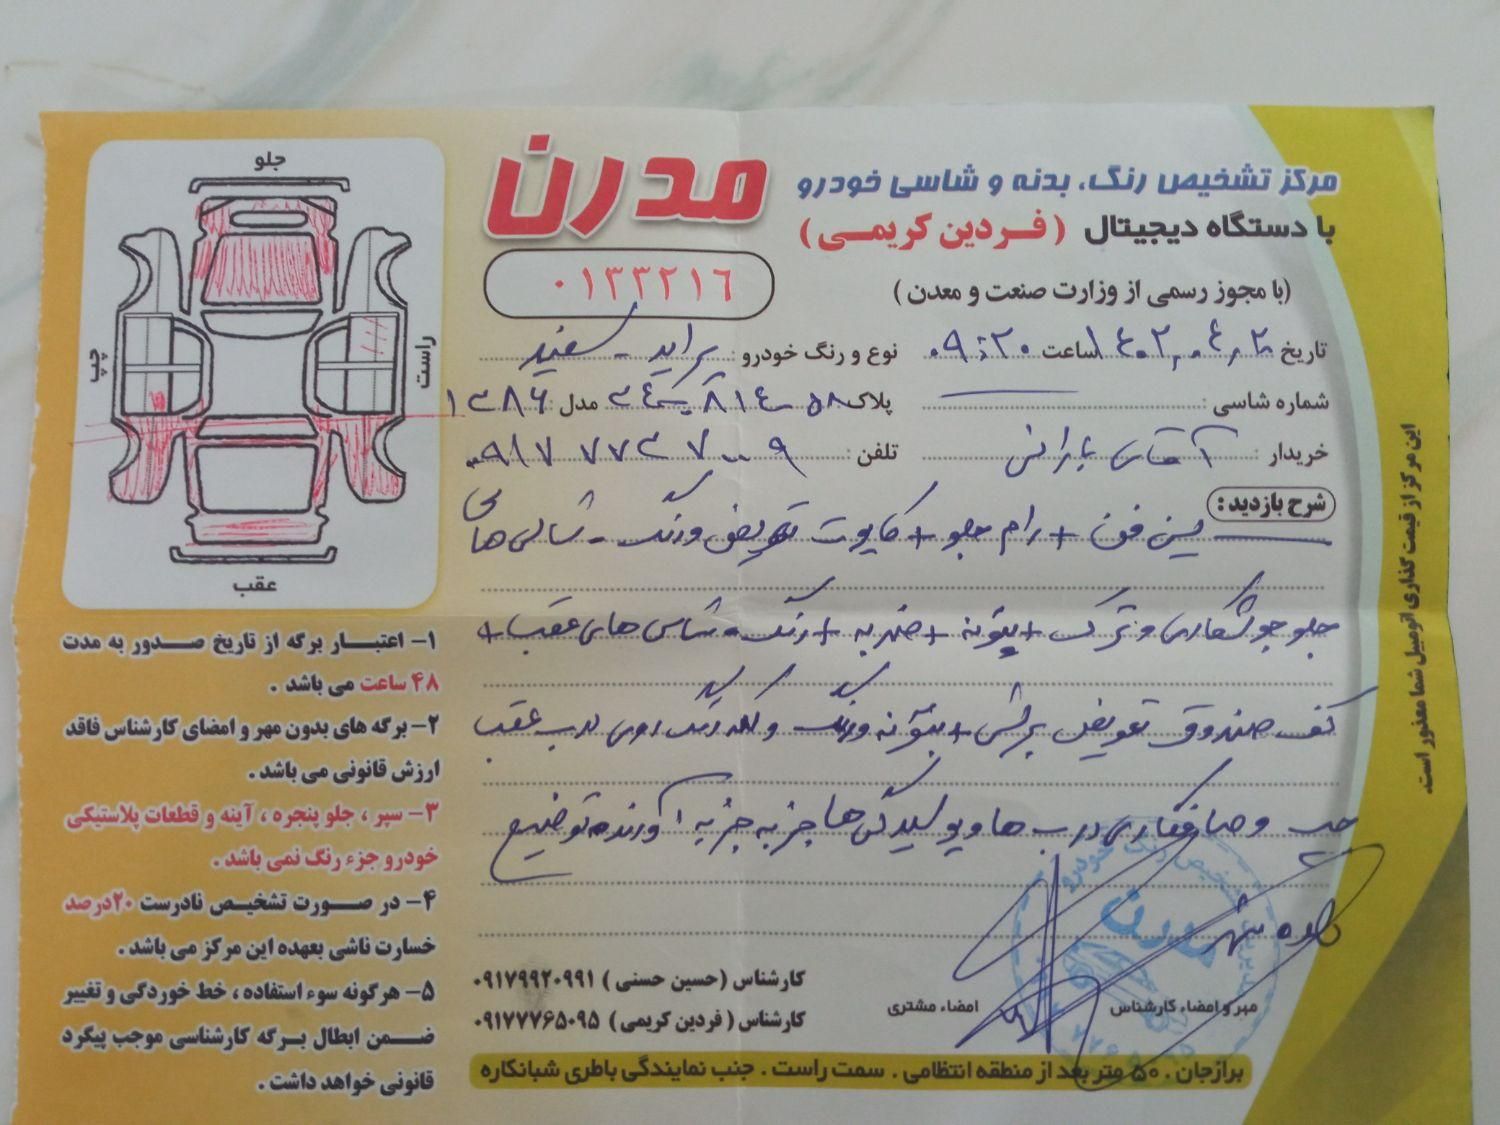 مرکز تشخیص رنگ، بدنه و شاسی خودرو
مدرن
با دستگاه دیجیتال (فردین کریمی)
۰۱۳۳۲۱۶
(با مجوز رسمی از وزارت صنعت و معدن)
تاریخ ساعت ۰۹:۲۰ نوع و رنگ خودرو: پراید - سفید
شماره شاسی: پلاک مدل: ۱۳۸۶
خریدار: آقای بارانی تلفن:
شرح بازدید:
سینی فن + رام جلو + کاپوت تعویض و رنگ - شاسی های
جلو جوشکاری و ترک + بتونه + ضربه + رنگ - شاسی های عقب +
کف صندوق تعویض برشی + بتونه و رنگ و لکه رنگ روی درب عقب
چپ و صافکاری درب ها و پوسیدگی ها جز به جز به آورنده توضیح
داده شد
مهر و امضاء کارشناس
امضاء مشتری
کارشناس (حسین حسنی) ۰۹۱۷۹۹۲۰۹۹۱
کارشناس (فردین کریمی) ۰۹۱۷۷۷۶۵۰۹۵
برازجان . ۵۰ متر بعد از منطقه انتظامی . سمت راست . جنب نمایندگی باطری شبانکاره
این مرکز از قیمت گذاری اتومبیل شما معذور است.
جلو
چپ
راست
عقب
۱- اعتبار برگه از تاریخ صدور به مدت
۴۸ ساعت می باشد .
۲- برگه های بدون مهر و امضای کارشناس فاقد
ارزش قانونی می باشد .
۳- سپر ، جلو پنجره ، آینه و قطعات پلاستیکی
خودرو جزء رنگ نمی باشد .
۴- در صورت تشخیص نادرست ۲۰درصد
خسارت ناشی بعهده این مرکز می باشد .
۵- هرگونه سوء استفاده ، خط خوردگی و تغییر
ضمن ابطال برگه کارشناسی موجب پیگرد
قانونی خواهد داشت .